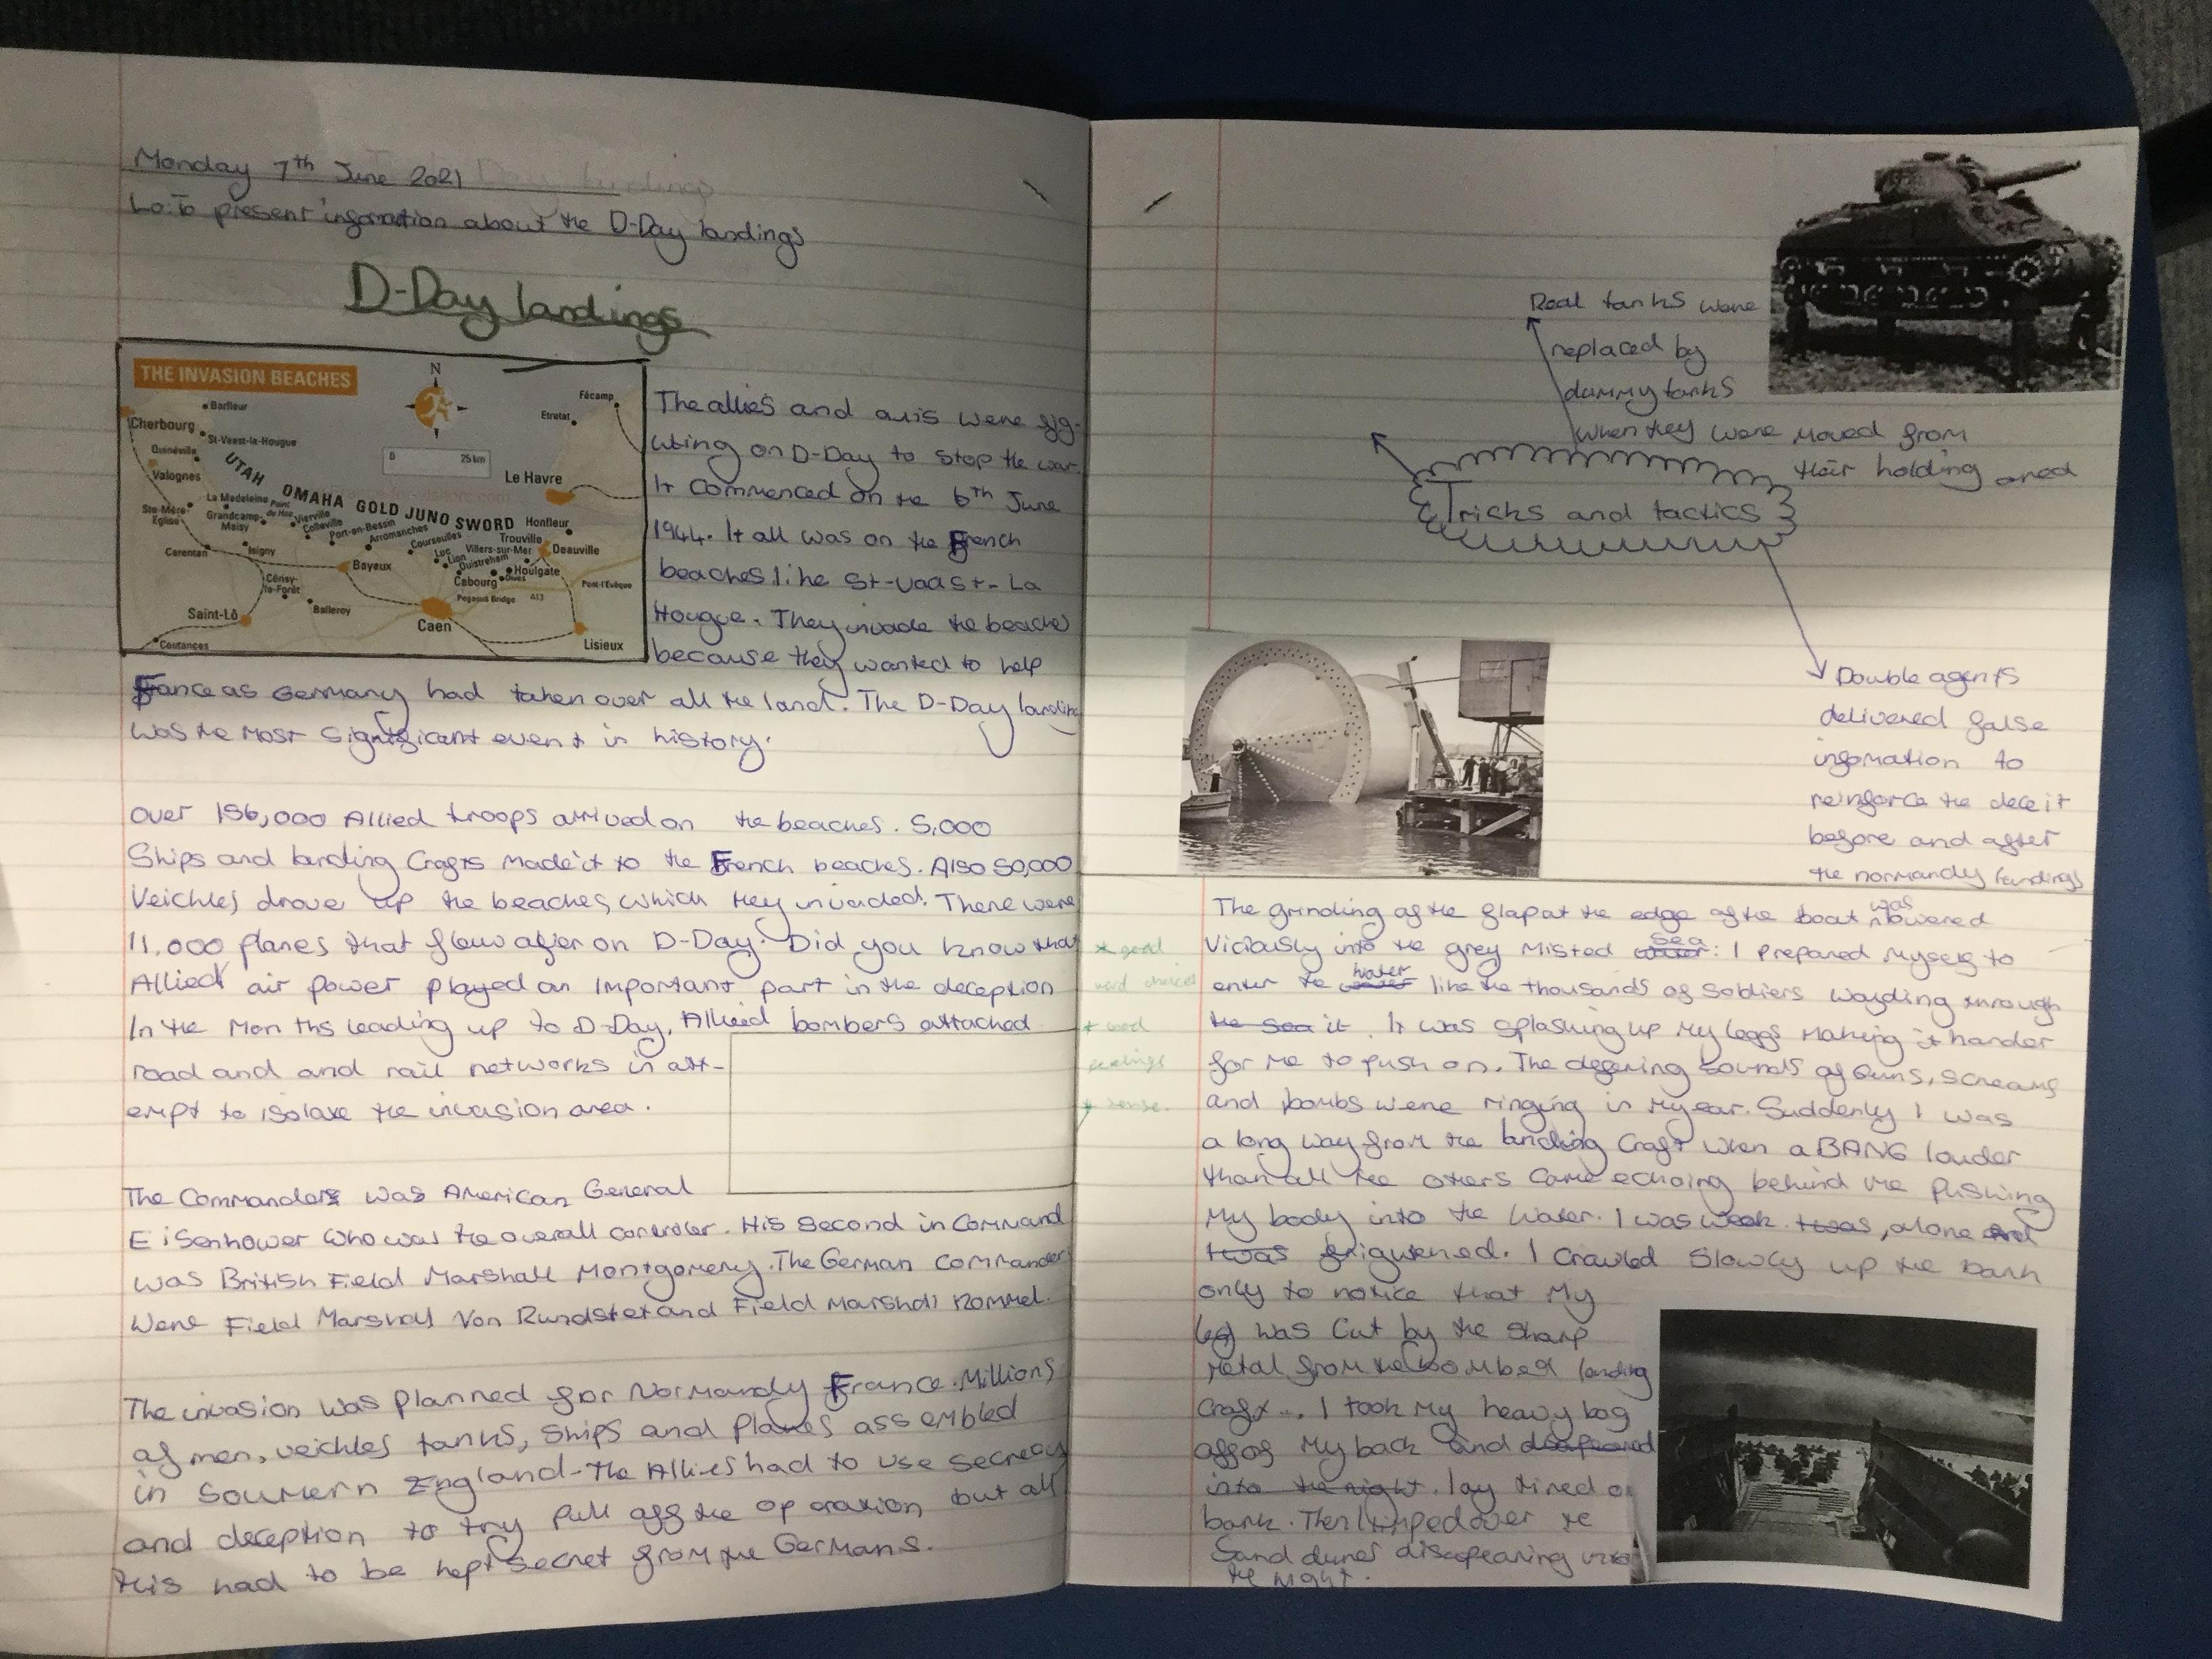 Monday 7th June 2021
Lo: To present infomation about the D-Day landings
D-Day landings
THE INVASION BEACHES
N
Fécamp
Barfleur
Etretat
Cherbourg
St-Vaast-la-Hougue
Quinéville
0 25 km
Valognes
UTAH
Le Havre
OMAHA
GOLD JUNO SWORD
La Madeleine
Pointe du Hoc
Vierville
Ste-Mère-Eglise
Grandcamp-Maisy
Colleville
Port-en-Bessin
Arromanches
Courseulles
Honfleur
Trouville
Villers-sur-Mer
Deauville
Carentan
Isigny
Luc
Lion
Ouistreham
Houlgate
Bayeux
Cabourg
Dives
Pont-l'Evêque
Cerisy-la-Forêt
Pegasus Bridge
A13
Balleroy
Saint-Lô
Caen
Coutances
Lisieux
The allies and axis were fig-
hting on D-Day to stop the war.
It commenced on the 6th June
1944. It all was on the French
beaches like St-Vaast-La
Hougue. They invade the beaches
because they wanted to help
France as Germany had taken over all the land. The D-Day landing
was the most significant event in history.
Over 156,000 Allied troops arrived on the beaches. 5,000
Ships and landing Crafts made it to the French beaches. Also 50,000
Veichles drove up the beaches which they invaded. There were
11,000 planes that flew after on D-Day. Did you know that
Allied air power played an important part in the deception
In the months leading up to D-Day, Allied bombers attached
road and and rail networks in att-
empt to isolate the invasion area.
The Commanders was American General
Eisenhower who was the overall controler. His second in Command
was British Field Marshall Montgomery. The German Commander
were Field Marshall Von Rundstet and Field Marshall Rommel.
The invasion was planned for Normandy France. Millions
of men, veichles tanks, ships and planes assembled
in Southern England - The Allies had to use secrecy
and deception to try pull off the operation but all
this had to be kept secret from the Germans.
Real tanks were
replaced by
dummy tanks
when they were moved from
their holding ared
Tricks and tactics
Double agents
delivered false
infomation to
reinforce the deceit
before and after
the normandy landings
was
The grinding of the flap at the edge of the boat lowered
sea
Viciously into the grey misted water: I prepared myself to
water
enter the like the thousands of soldiers wayding through
the sea it. It was splashing up my leggs making it harder
for me to push on. The defening sounds of guns, screams
and bombs were ringing in my ear. Suddenly I was
a long way from the landing craft when a BANG louder
than all the others came echoing behind me pushing
my body into the water. I was weak I was, alone and
I was frigntened. I crawled slowly up the bank
only to notice that my
leg was cut by the sharp
metal from the bombed landing
craft... I took my heavy bag
off of my back and disapeared
into the night. lay tired on
bank. Then I limped over the
Sand dunes disapearing into
the night.
* good
word choices
* used
feelings
* sense.